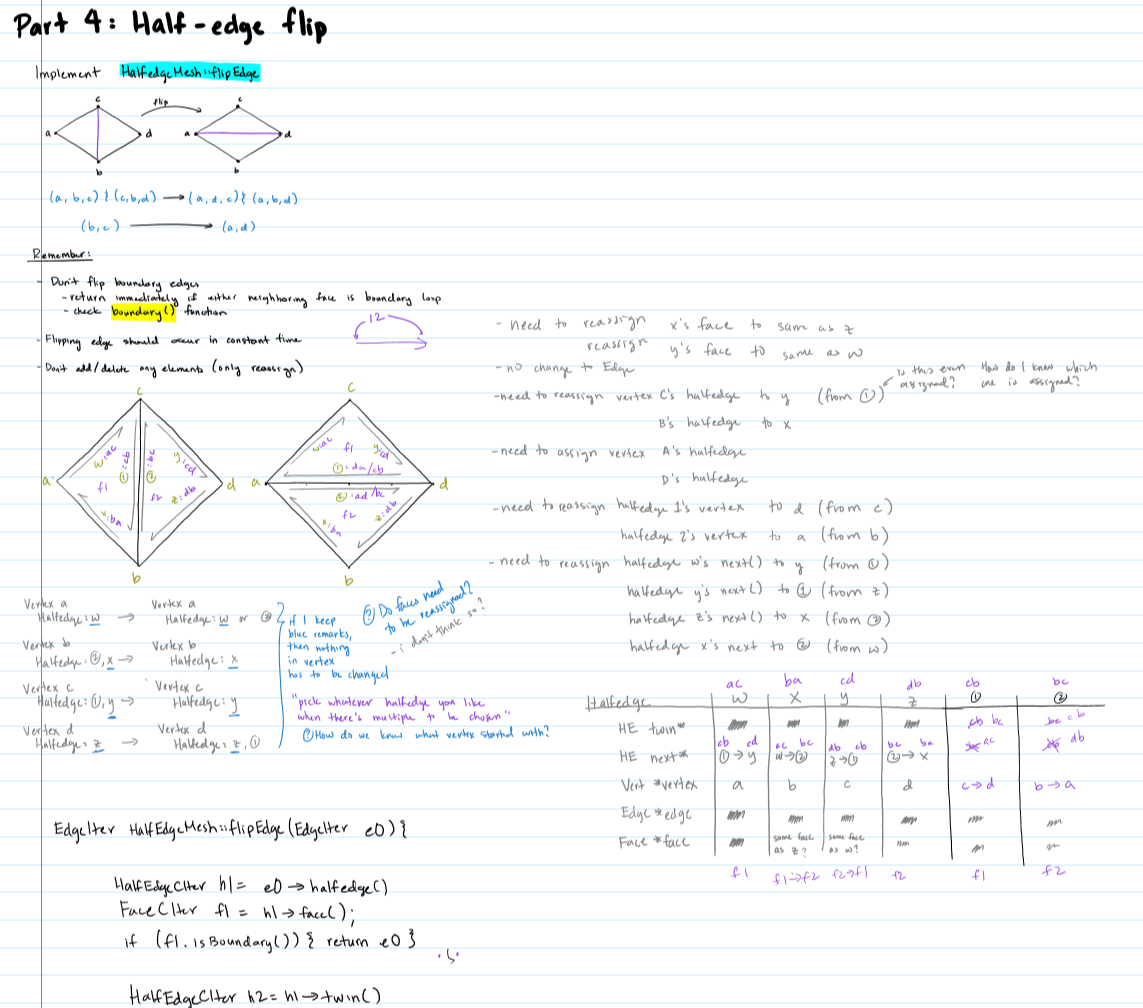 Part 4: Half-edge flip
Implement HalfedgeMesh::flipEdge
c flip c
a d a d
b b
(a, b, c) & (c, b, d) → (a, d, c) & (a, b, d)
(b, c) → (a, d)
Remember:
- Don't flip boundary edges
- return immediately if either neighboring face is boundary loop
- check boundary() function
- Flipping edge should occur in constant time
- Don't add/delete any elements (only reassign)
12
- need to reassign x's face to same as z
reassign y's face to same as w
- no change to Edge
Is this even assigned?
How do I know which one is assigned?
- need to reassign vertex C's halfedge to y (from ①)
B's halfedge to x
- need to assign vertex A's halfedge
D's halfedge
- need to reassign halfedge 1's vertex to d (from c)
halfedge 2's vertex to a (from b)
- need to reassign halfedge w's next() to y (from ①)
halfedge y's next() to ① (from z)
halfedge z's next() to x (from ②)
halfedge x's next to ② (from w)
c
w:ac ①:cb ②:bc y:cd
a f1 f2 d
x:ba z:db
b
c
w:ac f1 y:cd
①:da/cb
a d
②:ad/bc
x:ba f2 z:db
b
Vertex a → Vertex a
Halfedge: w Halfedge: w or ②
Vertex b Vertex b
Halfedge: ②, x → Halfedge: x
Vertex c Vertex c
Halfedge: ①, y → Halfedge: y
Vertex d Vertex d
Halfedge: z → Halfedge: z, ①
if I keep
blue remarks,
then nothing
in vertex
has to be changed
? Do faces need
to be reassigned?
- i don't think so?
"pick whatever halfedge you like
when there's multiple to be chosen"
? How do we know what vertex started with?
ac ba cd db cb bc
Halfedge w x y z ① ②
HE twin* cb bc bc cb
cb cd ac bc db cb bc ba
HE next* ①→y w→② z→① ②→x ac db
Vert *vertex a b c d c→d b→a
Edge *edge
Face *face same face as z? same face as w?
f1 f1→f2 f2→f1 f2 f1 f2
EdgeIter HalfEdgeMesh::flipEdge(EdgeIter e0){
HalfEdgeCIter h1 = e0→halfedge()
FaceCIter f1 = h1→face();
if (f1.isBoundary()) { return e0 }
HalfEdgeCIter h2 = h1→twin()